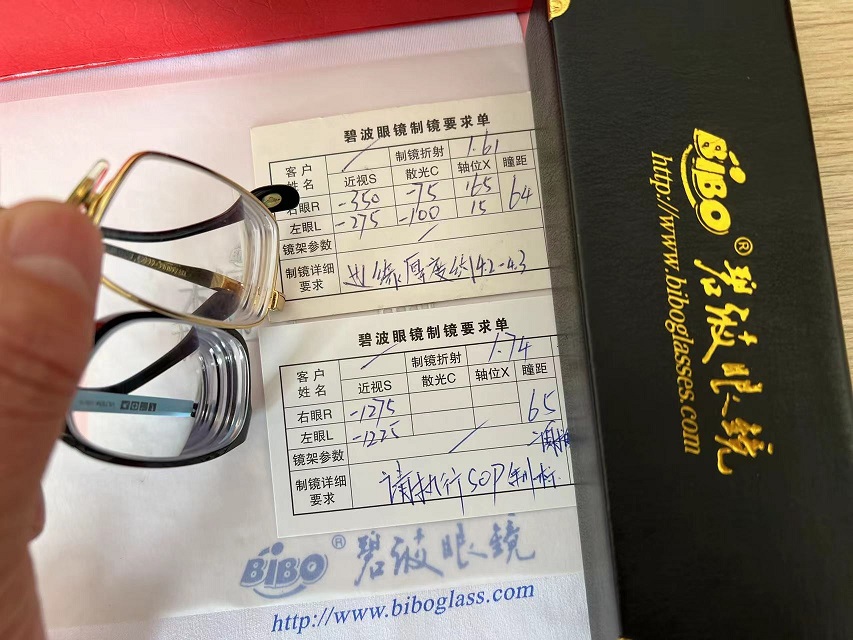 碧波眼镜制镜要求单
客户姓名 制镜折射 1.61
近视S 散光C 轴位X 瞳距
右眼R -350 -75 165 64
左眼L -275 -100 15
镜架参数
制镜详细要求 边缘厚度约4.2-4.3
碧波眼镜制镜要求单
客户姓名 制镜折射 1.74
近视S 散光C 轴位X 瞳距
右眼R -1275 65
左眼L -1275
镜架参数
制镜详细要求 请执行SOP制标
BiBO® 碧波眼镜
http://www.biboglass.com
BiBO® 碧波眼镜
http://www.biboglasses.com